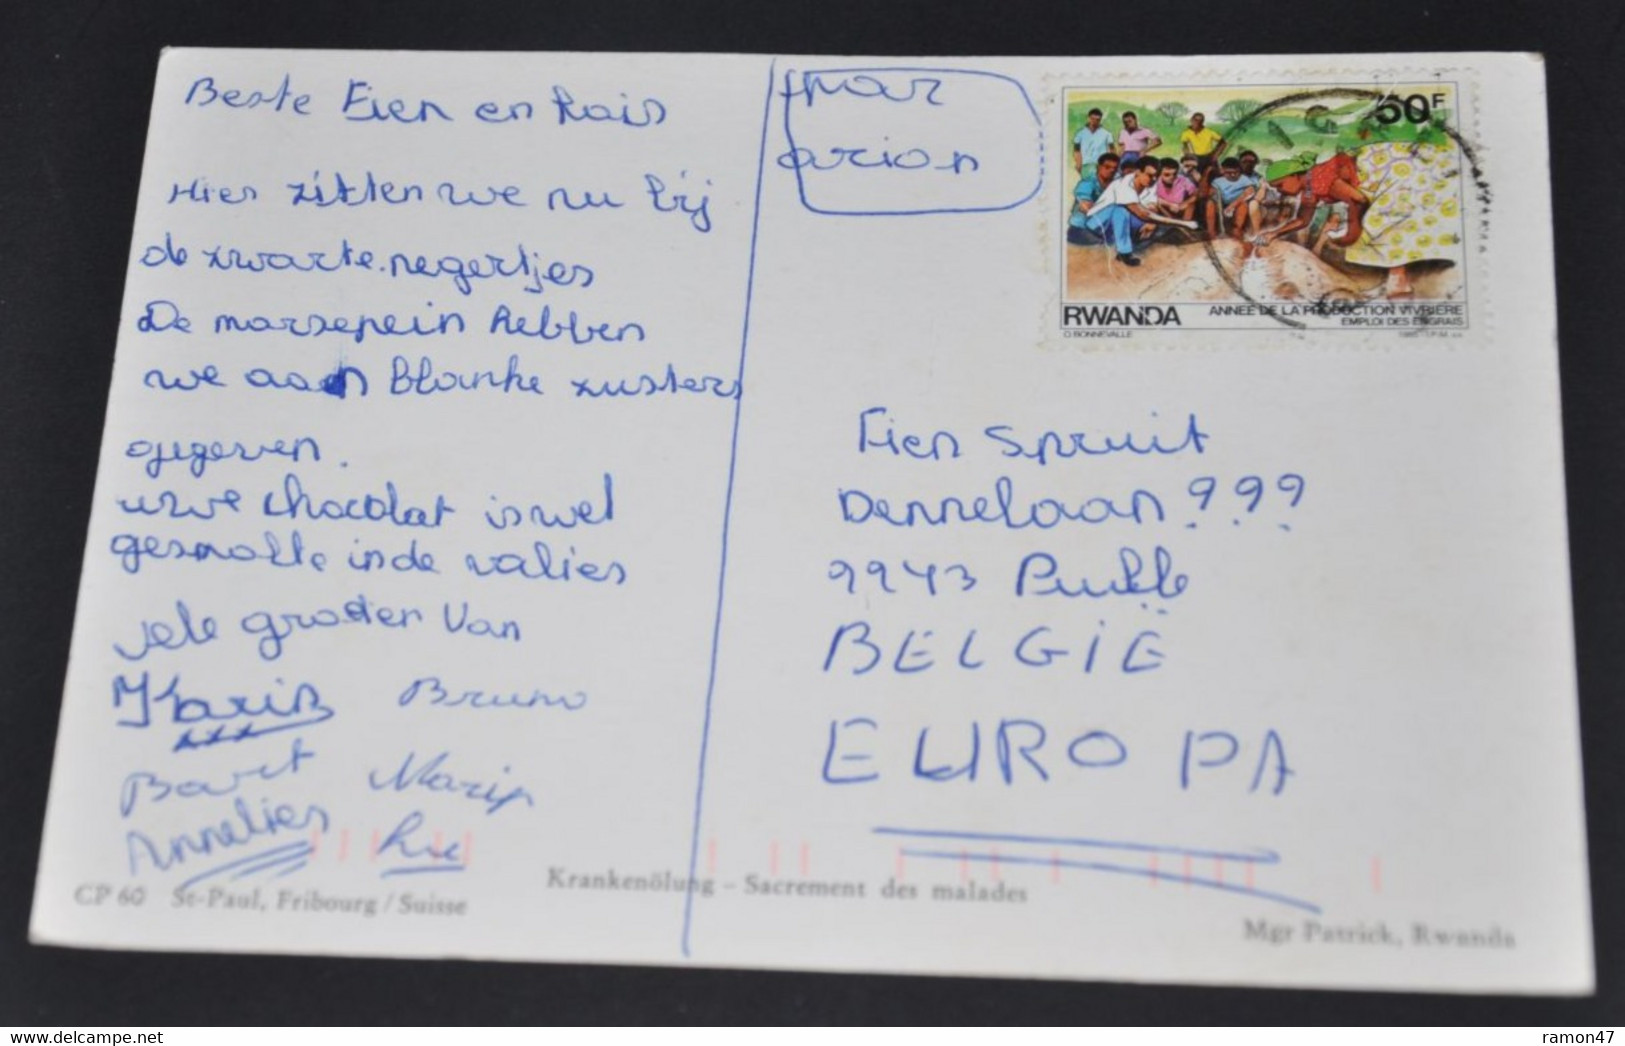 Beste Fien en Kais
Hier zitten we nu bij
de zwarte negertjes
De marsepein hebben
we aan blanke zusters
gegeven.
uwe chocolat is wel
gesmolte in de valies
vele groeten van
Karin Bruno
xxx
Bart Marip
Annelies Luc
par
avion
50F
RWANDA
ANNÉE DE LA PRODUCTION VIVRIERE
EMPLOI DES ENGRAIS
O. BONNEVALLE
Fien Spruit
Dennelaan ???
9943 Pulle
BELGIË
EUROPA
CP 60 St-Paul, Fribourg / Suisse
Krankenölung – Sacrement des malades
Mgr Patrick, Rwanda
ramon47